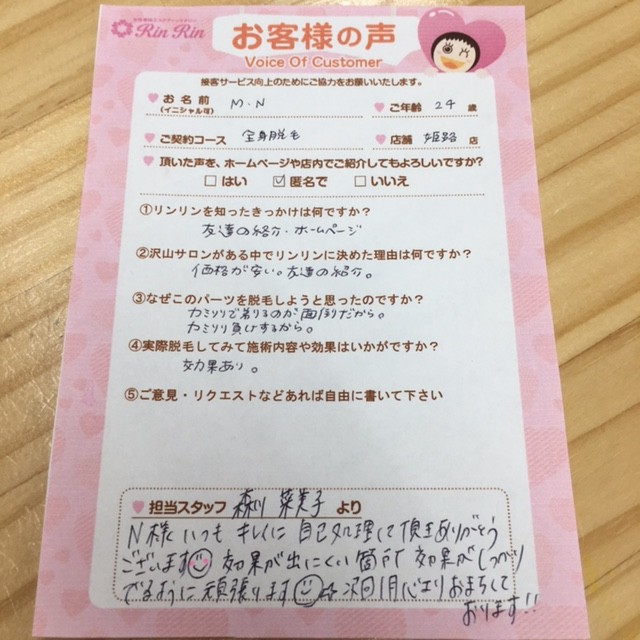 Rin Rin
お客様の声
Voice Of Customer
接客サービス向上のためにご協力をお願いいたします。
お名前 M.N ご年齢 24 歳
(イニシャル可)
ご契約コース 全身脱毛 店舗 姫路 店
頂いた声を、ホームページや店内でご紹介してもよろしいですか?
はい 匿名で いいえ
①リンリンを知ったきっかけは何ですか?
友達の紹介・ホームページ
②沢山サロンがある中でリンリンに決めた理由は何ですか?
価格が安い。友達の紹介。
③なぜこのパーツを脱毛しようと思ったのですか?
カミソリで剃るのが面倒だから。
カミソリ負けするから。
④実際脱毛してみて施術内容や効果はいかがですか?
効果あり。
⑤ご意見・リクエストなどあれば自由に書いて下さい
担当スタッフ 森川 菜美子 より
N様いつもキレイに自己処理して頂きありがとう
ございます 効果が出にくい箇所効果がしっかり
でるように頑張ります 次回1月 おまちして
おります!!